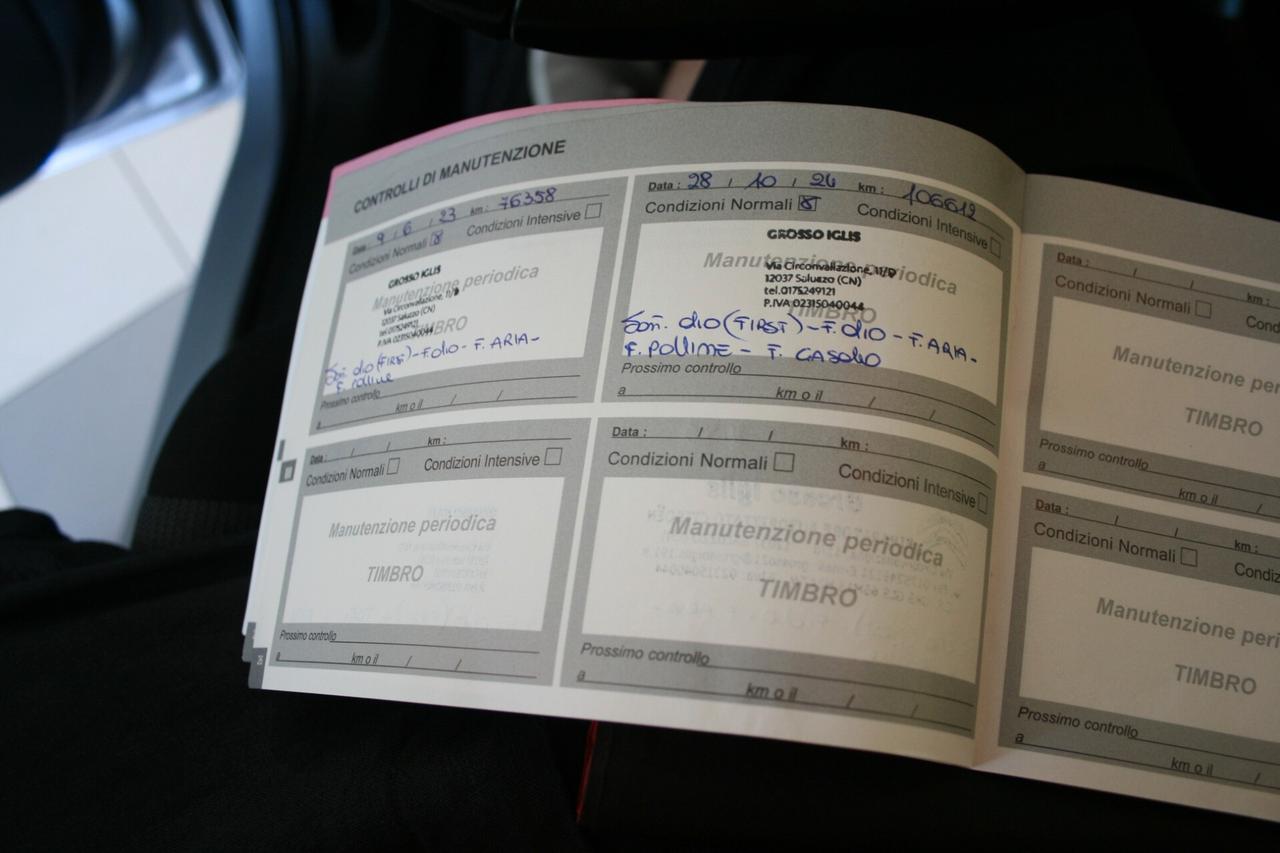 CONTROLLI DI MANUTENZIONE
Data : 9 / 6 / 23 km : 76358
Condizioni Normali Condizioni Intensive
GROSSO IGLIS
Manutenzione periodica
Via Circonvallazione, 11/D
12037 Saluzzo (CN)
tel.0175249121
P.IVA 02315040044
TIMBRO
Sost. olio (FIRST) - F.olio - F. ARIA -
F. Polline
Prossimo controllo
a km o il / /
Data : 28 / 10 / 24 km : 106612
Condizioni Normali Condizioni Intensive
GROSSO IGLIS
Manutenzione periodica
Via Circonvallazione, 11/D
12037 Saluzzo (CN)
tel.0175249121
P.IVA 02315040044
TIMBRO
Sost. olio (FIRST) - F.olio - F. ARIA -
F. POLLINE - F. GASOLIO
Prossimo controllo
a km o il / /
Data : / / km :
Condizioni Normali Condizioni Intensive
Manutenzione periodica
TIMBRO
Prossimo controllo
a km o il / /
Data : / / km :
Condizioni Normali Condizioni Intensive
Manutenzione periodica
TIMBRO
Prossimo controllo
a km o il / /
Data : / / km :
Condizioni Normali Cond
Manutenzione per
TIMBRO
Prossimo controllo
a km o il /
Data : / / km :
Condizioni Normali Condiz
Manutenzione peri
TIMBRO
Prossimo controllo
a km o il /